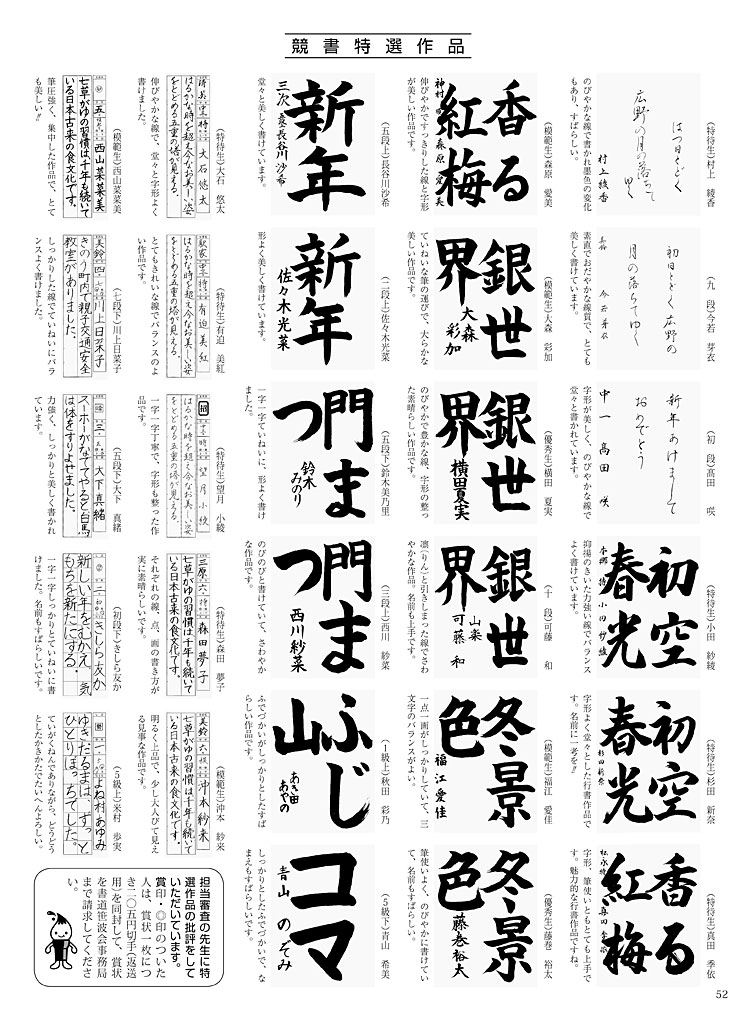 競書特選作品
(特待生)村上 綾香
はつ日とどく
広野の月の落ちて
ゆく
村上綾香
のびやかな線で書かれ墨色の変化
もあり、すばらしい。
(九 段)今若 芽衣
初日とどく広野の
月の落ちてゆく
今若芽衣
素直でおだやかな線質で、とても
美しく書けています。
(初 段)髙田 咲
新年あけまして
おめでとう
中一 髙田 咲
字形が美しく、のびやかな線で
堂々と書かれています。
(特待生)小田 紗綾
初空
春光
小田紗綾
抑揚のきいた力強い線でバランス
よく書けています。
(特待生)杉田 新奈
初空
春光
杉田新奈
字形よく堂々とした行書作品で
す。名前に一考を!!
(特待生)真田 季依
香る
紅梅
真田季依
字形、筆使いともとても上手で
す。魅力的な行書作品ですね。
(模範生)森原 愛美
香る
紅梅
神村
森原愛美
伸びやかですっきりした線と字形
が美しい作品です。
(模範生)大森 彩加
銀世
界
大森
彩加
ていねいな筆の運びで、大らかな
美しい作品です。
(優秀生)横田 夏実
銀世
界
横田夏実
のびやかで豊かな線、字形の整っ
た素晴らしい作品です。
(十 段)可藤 和
銀世
界
可藤 和
凛(りん)と引きしまった線でさわ
やかな作品。名前も上手です。
(模範生)福江 愛佳
冬景
色
福江愛佳
一点一画がしっかりしていて、三
文字のバランスがよい。
(優秀生)藤巻 裕太
冬景
色
藤巻裕太
筆使いよく、のびやかに書けてい
て、名前もすばらしいです。
(五段上)長谷川沙希
新年
三次 長谷川沙希
堂々と美しく書けています。
(二段上)佐々木光菜
新年
佐々木光菜
形よく美しく書けています。
(五段下)鈴木美乃里
門ま
つ
鈴木
みのり
一字一字ていねいに、形よく書け
ました。
(三段上)西川 紗菜
門ま
つ
西川紗菜
のびのびと書けていて、さわやか
な作品です。
(1級上)秋田 彩乃
ふじ
山
あき田
あやの
ふでづかいがしっかりとしたすば
らしい作品です。
(5級下)青山 希美
コマ
青山 のぞみ
しっかりとしたふでづかいで、な
まえもすばらしいです。
(特待生)大石 悠太
大石悠太
はるかな時を超え今なお美しい姿
をとどめる五重の塔が見える。
伸びやかな線で、堂々と字形よく
書けました。
(特待生)有迫 美紅
駅家 有迫美紅
はるかな時を超え今なお美しい姿
をとどめる五重の塔が見える。
とてもきれいな線でバランスのよ
い作品です。
(特待生)望月 小綾
望月小綾
はるかな時を超え今なお美しい姿
をとどめる五重の塔が見える。
一字一字丁寧で、字形も整った作
品です。
(特待生)森田 夢子
三原 六 特 森田夢子
七草がゆの習慣は千年も続いて
いる日本古来の食文化です。
それぞれの線、点、画の書き方が
実に素晴らしいです。
(模範生)沖本 紗来
美鈴 六 沖本紗来
七草がゆの習慣は千年も続いて
いる日本古来の食文化です。
明るく上品で、少し大人びて見え
る見事な作品です。
(模範生)西山菜菜美
五 西山菜菜美
七草がゆの習慣は千年も続いて
いる日本古来の食文化です。
筆圧強く、集中した作品で、とて
も美しい!!
(七段下)川上日菜子
美鈴 四 川上日菜子
きのう町内で親子交通安全
教室がありました。
しっかりした線でていねいにバラ
ンスよく書けました。
(五段下)大下 真緒
三 大下真緒
スーホーがなでてやると白馬
は体をすりよせました。
力強く、しっかりと美しく書かれ
ています。
(初段下)きしら友か
二 きしら友か
新しい年をむかえ、気
もちを新たにする。
一字一字しっかりとていねいに書
けました。名前もすばらしいです。
(5級上)米村 歩実
一 よね村あゆみ
ゆきだるまは、ずっと
ひとりぼっちでした。
ていがくねんでありながら、どうどう
としたかきかたでたいへんよろしい。
担当審査の先生に特
選作品の批評をして
いただいています。
賞印・◎印のついた
人は、賞状一枚につ
き二〇五円切手(返送
用)を同封して、賞状
を書道笹波会事務局
まで請求してくださ
い。
52